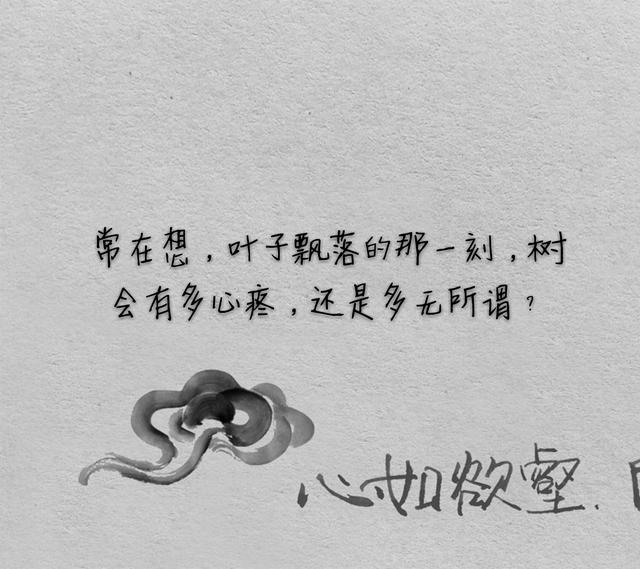 常在想，叶子飘落的那一刻，树
会有多心疼，还是多无所谓？
心如欲壑.